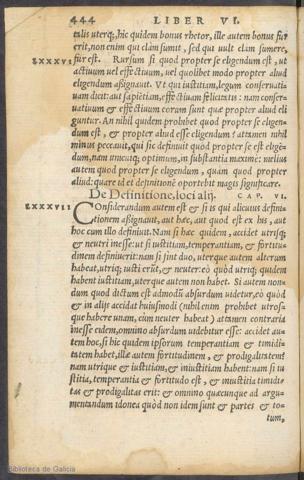 444 LIBER VI.
talis uterq;, hic quidem bonus rhetor, ille autem bonus fur
erit, non enim qui clàm sumit, sed qui vult clàm sumere,
fur est. Rursum si quod propter se eligendum est, ut
LXXXVI
actiuum vel effectiuum, vel quolibet modo propter aliud
eligendum aßignauit. Vt qui iustitiam, legum conseruatiuam
uam dicit: aut sapiẽtiam, effectiuam felicitatis: nam conser-
uatiuum & effectiuum eorum sunt quæ propter aliud eli
guntur. An nihil quidem prohibet quod propter se eligen-
dum est, & propter aliud esse eligendum? attamen nihil
minus peccauit, qui sic definiit quod propter se est eligẽ-
dum, nam unicuiq; optimum, in substantia maximè: melius
autem quod propter se eligendum, quàm quod propter
aliud: quare id et definitionẽ oportebit magis significare.
De Definitione, loci alij. CAP. VI.
LXXXVII
Considerandum autem est & si is qui alicuius defini-
tionem aßignauit, aut hæc, aut quod est ex his, aut
hoc cum illo definiuit. Nam si hæc quidem, accidet utrisq;
& neutri inesse: ut si iustitiam, temperantiam, & fortitu-
dinem definiuerit: nam si sint duo, uterque autem alterum
habeat, utriq; iusti erũt, & neuter: eò quòd utriq; quidem
habent iustitiam, uterque autem non habet. Si autem non-
dum quod dictum est admodũ absurdum uidetur, eò quòd
& in alijs accidat huiusmodi (nihil enim prohibet utros-
que habere unam, cùm neuter habeat) attamen contraria
inesse eidem, omnino absurdum uidebitur esse: accidet au-
tem hoc, si hic quidem ipsorum temperantiam & timidi-
tatem habet, ille autem fortitudinem, & prodigalitatem:
nam utrique & iustitiam, & iniustitiam habent: nam si iu
stitia, temperantia & fortitudo est, & iniustitia timidi-
tas & prodigalitas erit: & omnino quæcunque ad argu-
mentandum idonea quòd non idem sunt & partes & to-
tum,
Biblioteca de Galicia